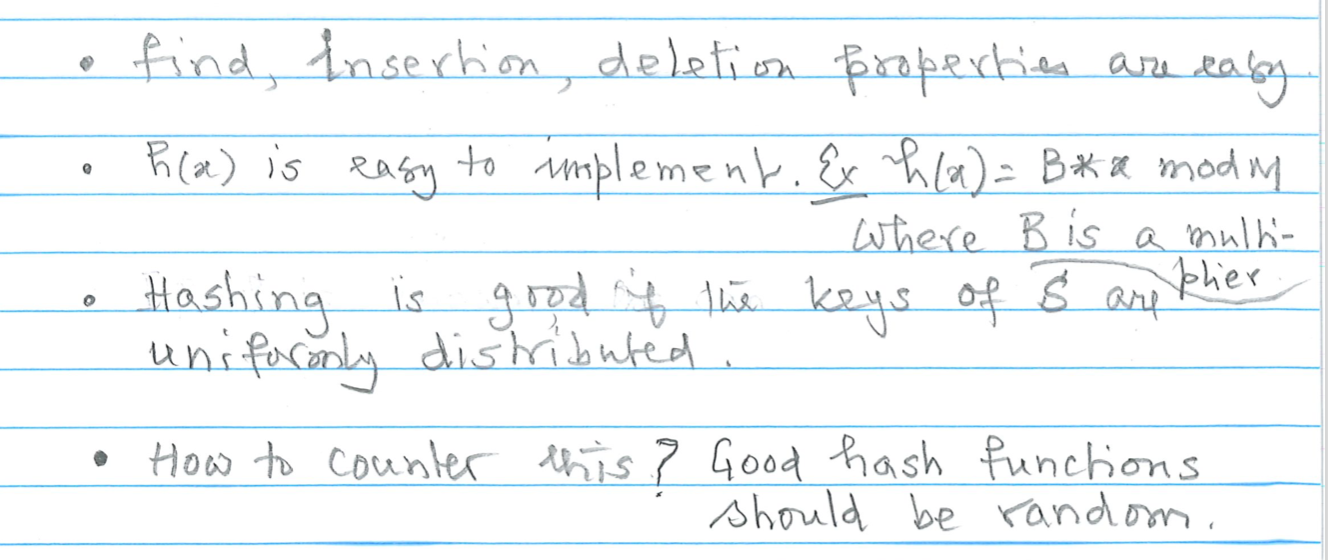 • find, Insertion, deletion properties are easy.
• h(x) is easy to implement. Ex h(x) = B*x mod M
where B is a multi-
plier
• Hashing is good if the keys of S are
uniformly distributed.
• How to counter this? Good hash functions
should be random.